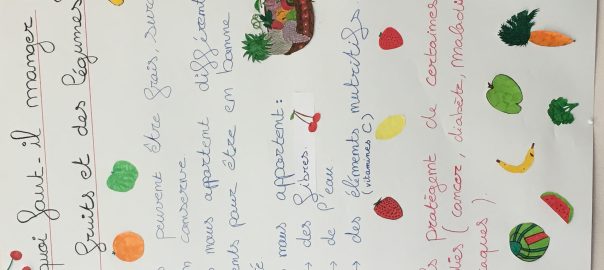 quoi faut-il manger
fruits et des légumes
peuvent être frais, sur
n conserve
nous apportent différent
ents pour être en bonne
é
nous apportent:
→ des fibres.
→ de l'eau.
→ des éléments nutritifs.
(vitamines C)
s protègent de certaines
ies (cancer, diabète, maladi
aques).